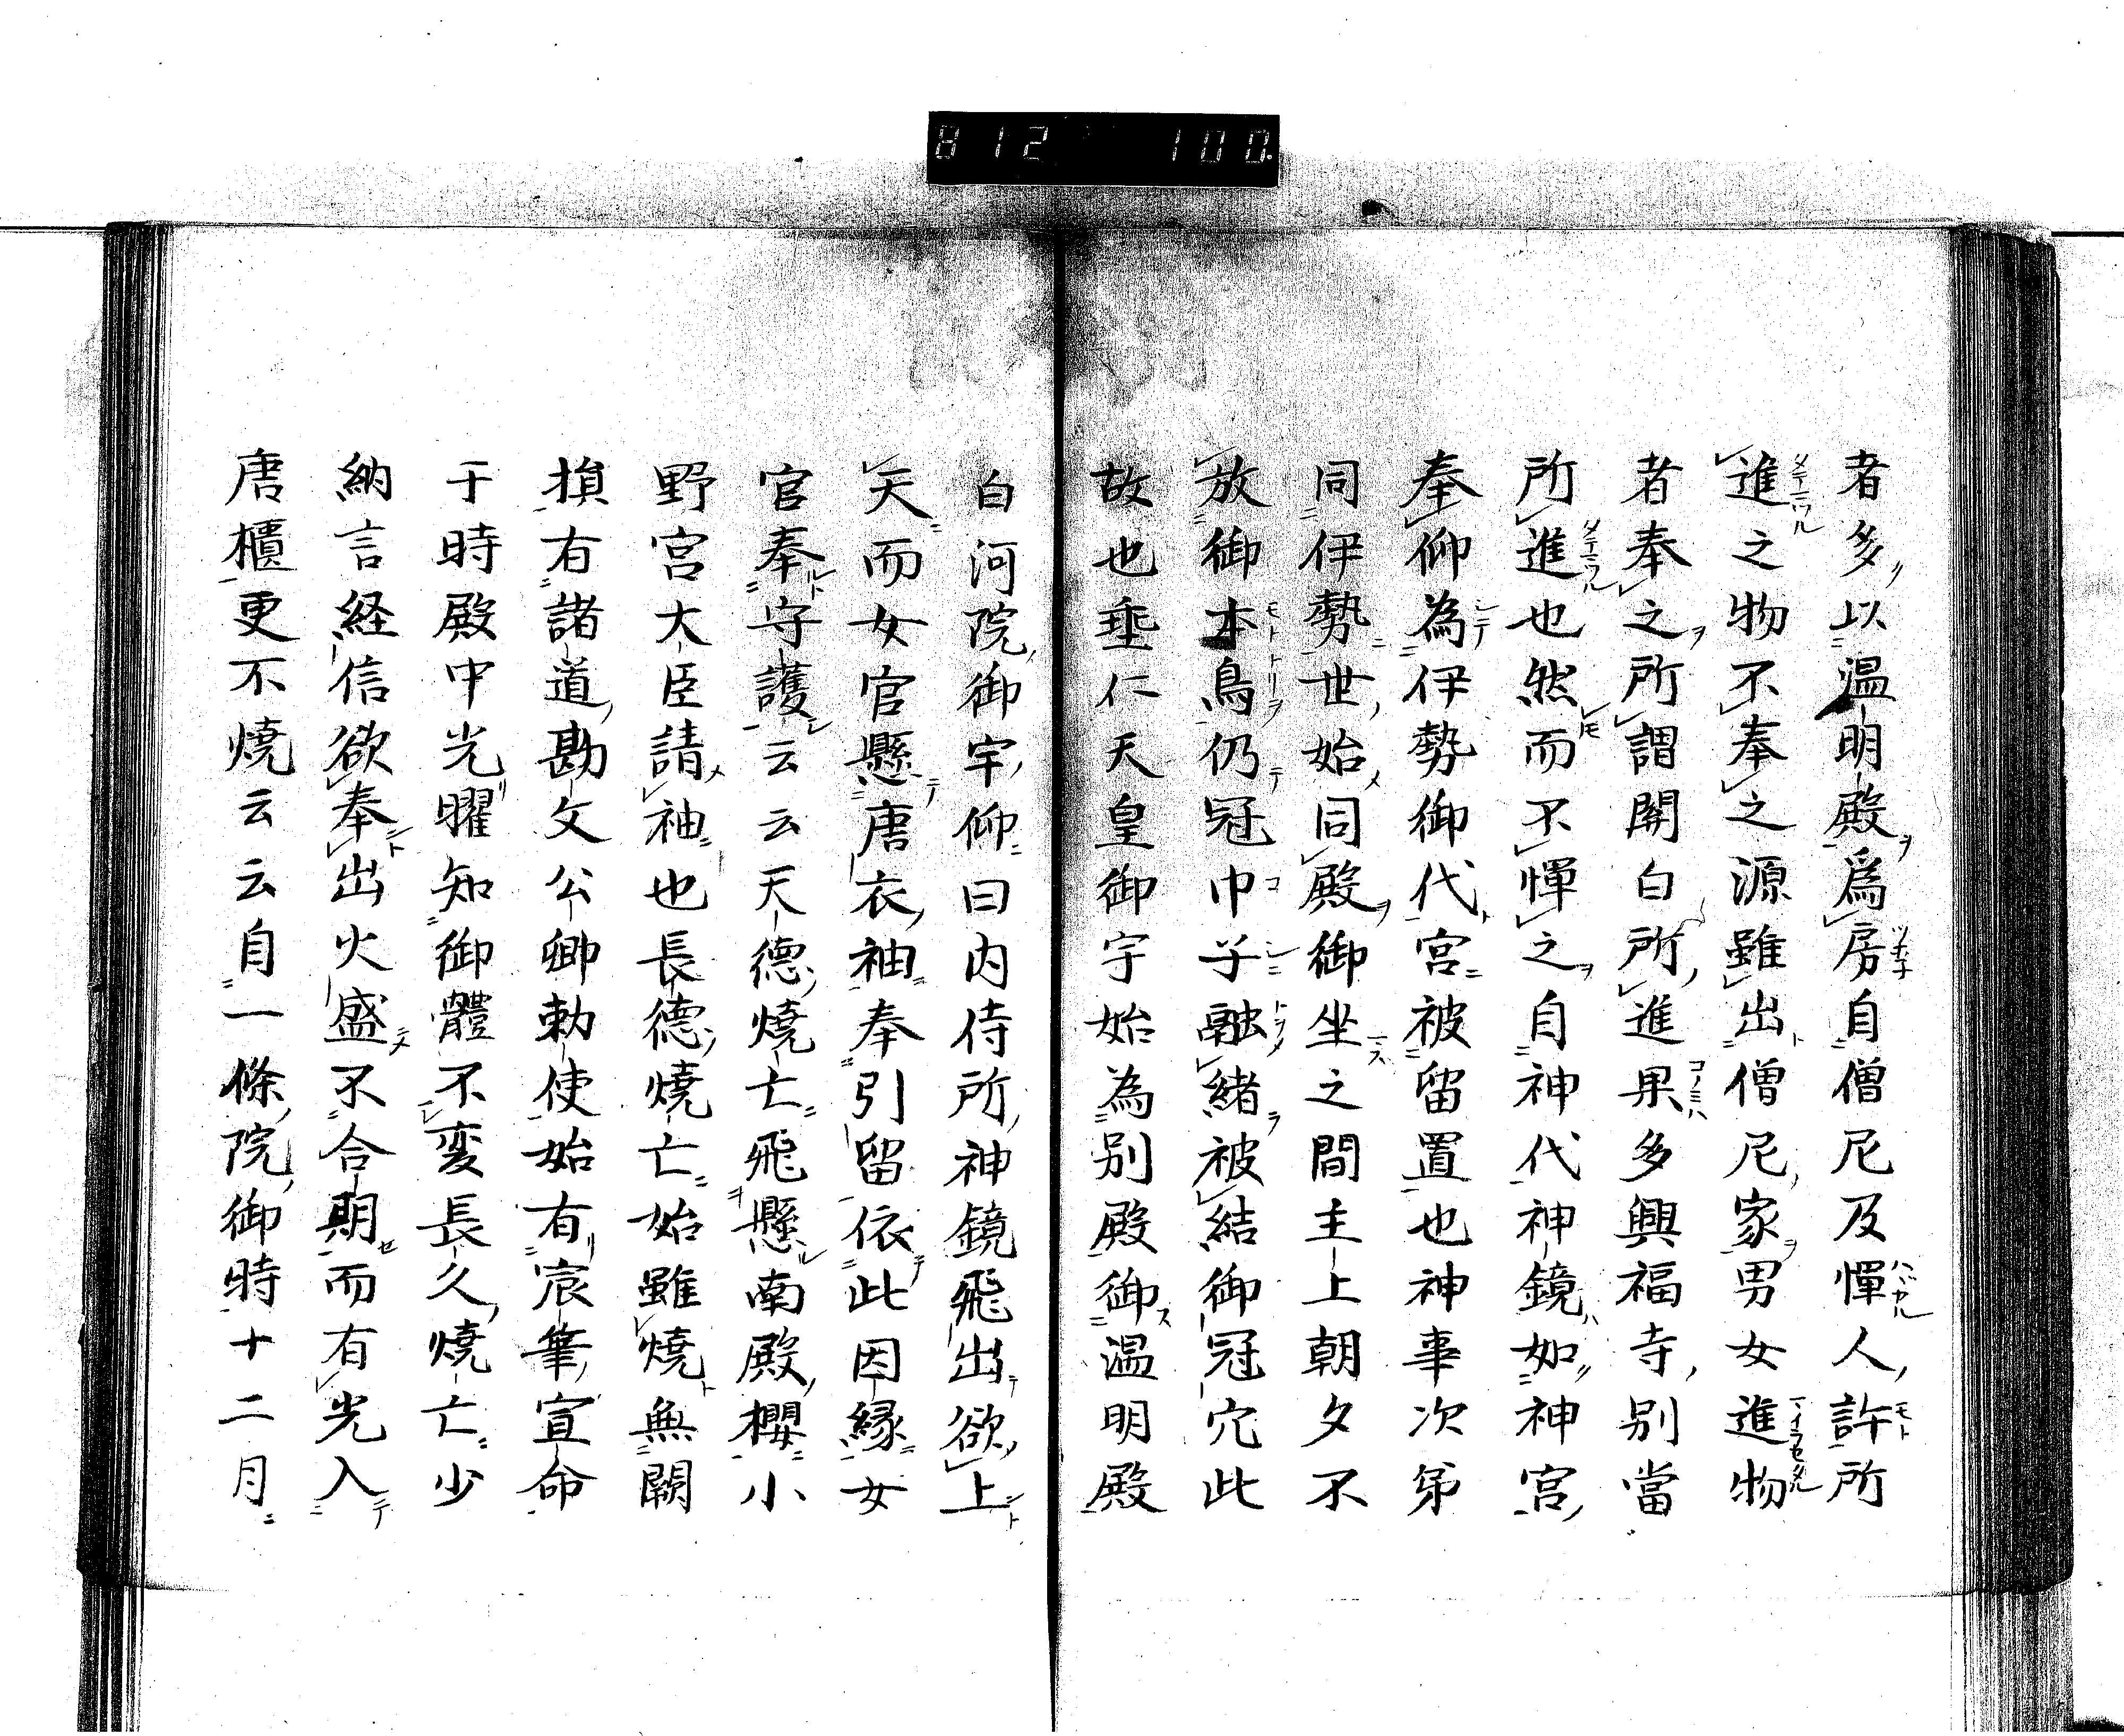 812 100
者多以温明殿為房自僧尼及憚人許所
進之物不奉之源雖出僧尼家男女進物
者奉之所謂関白所進果多興福寺別當
所進也然而不憚之自神代神鏡如神宮
奉仰為伊勢御代宮被留置也神事次第
同伊勢世始同殿御坐之間主上朝夕不
放御本鳥仍冠巾子融緒被結御冠穴此
故也垂仁天皇御宇始為別殿御温明殿
白河院御宇仰曰内侍所神鏡飛出欲上
天而女官懸唐衣袖奉引留依此因縁女
官奉守護云云天徳焼亡飛懸南殿櫻小
野宮大臣請袖也長徳焼亡始雖焼無闕
損有諸道勘文公卿勅使始有宸筆宣命
于時殿中光曜知御體不変長久焼亡少
納言経信欲奉出火盛不合期而有光入
唐櫃更不焼云云自一條院御時十二月